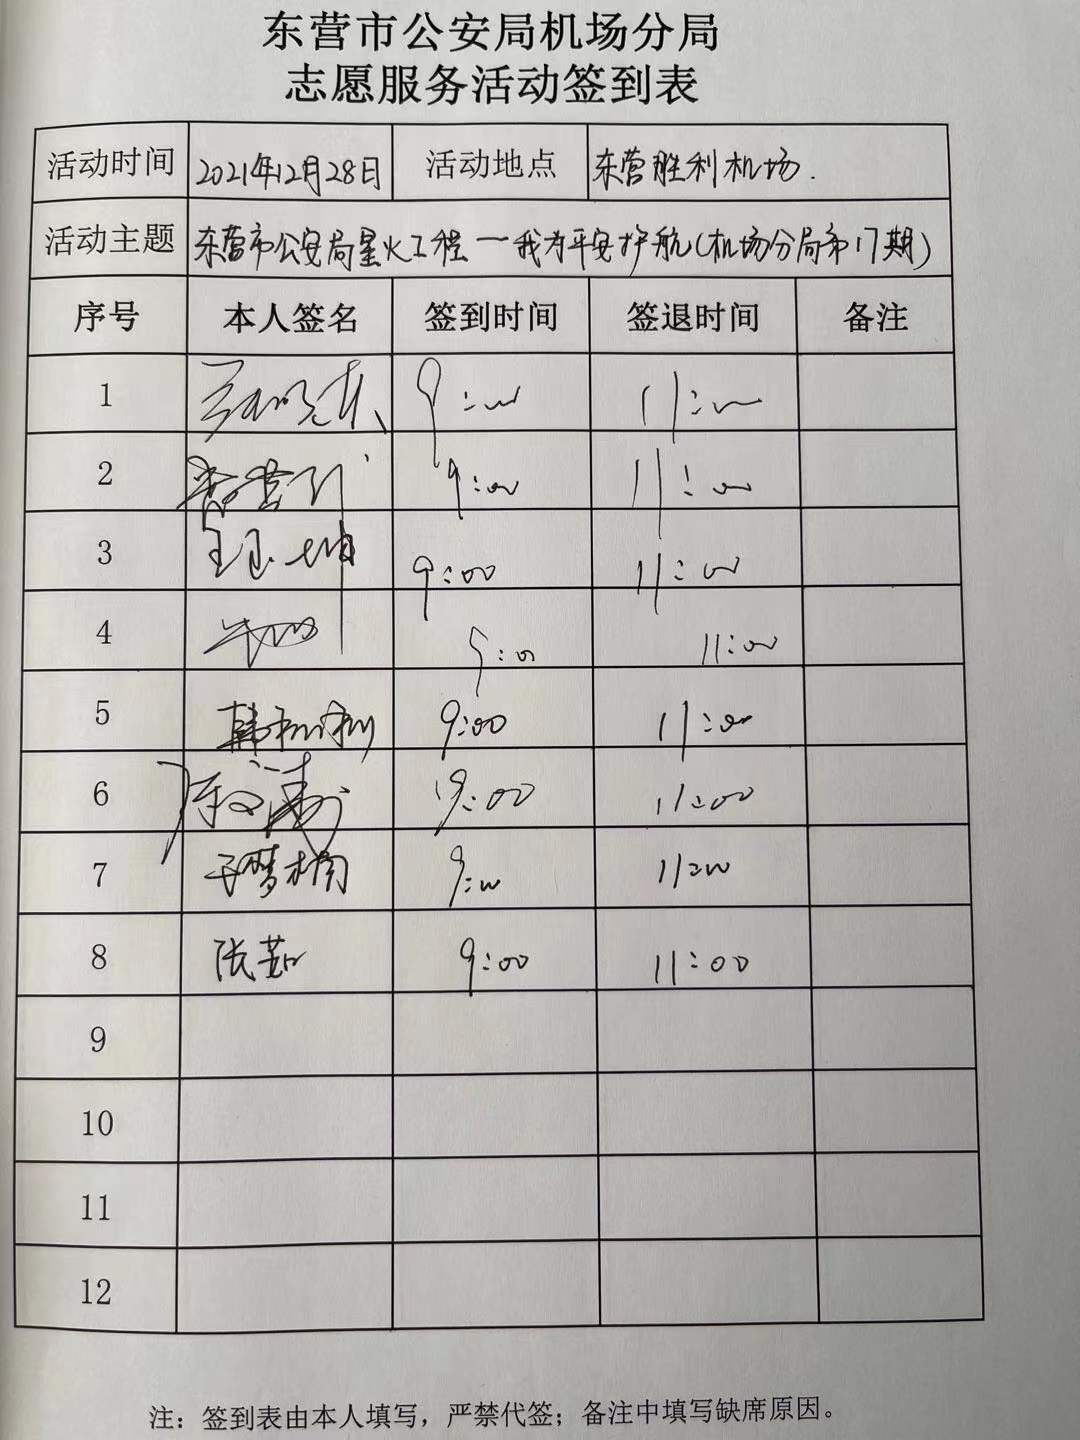 东营市公安局机场分局
志愿服务活动签到表
活动时间 2021年12月28日 活动地点 东营胜利机场.
活动主题 东营市公安局星火工程一我为平安护航(机场分局第17期)
序号 本人签名 签到时间 签退时间 备注
1 9:00 11:00
2 9:00 11:00
3 9:00 11:00
4 9:00 11:00
5 9:00 11:00
6 9:00 11:00
7 于梦楠 9:00 11:00
8 张茹 9:00 11:00
9
10
11
12
注：签到表由本人填写，严禁代签；备注中填写缺席原因。